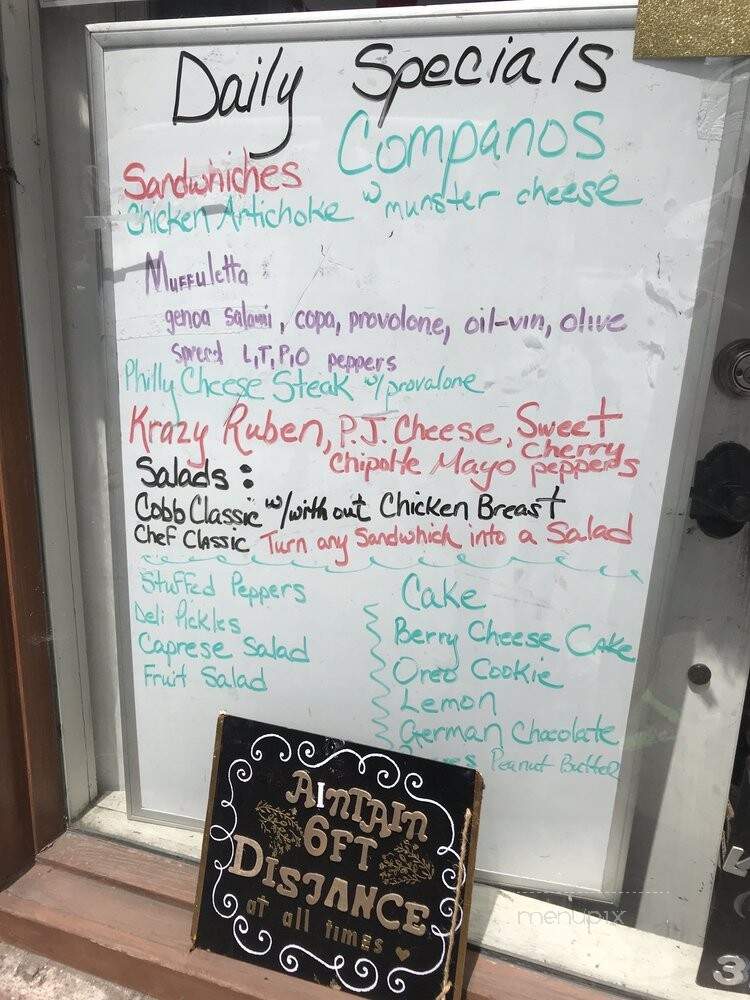 Daily Specials
Companos
Sandwhiches
Chicken Artichoke w munster cheese
Muffuletta
genoa salami, copa, provolone, oil-vin, olive
spred L,T,P,O peppers
Philly Cheese Steak w/provalone
Krazy Ruben, P.J. Cheese, Sweet
Cherry
Chipotle Mayo peppers
Salads:
Cobb Classic w/with out Chicken Breast
Chef Classic Turn any Sandwhich into a Salad
Stuffed Peppers
Deli Pickles
Caprese Salad
Fruit Salad
Cake
Berry Cheese Cake
Oreo Cookie
Lemon
German Chocolate
Peanut Butter
AINTAIN
6FT
DISTANCE
at all times
menupix
3